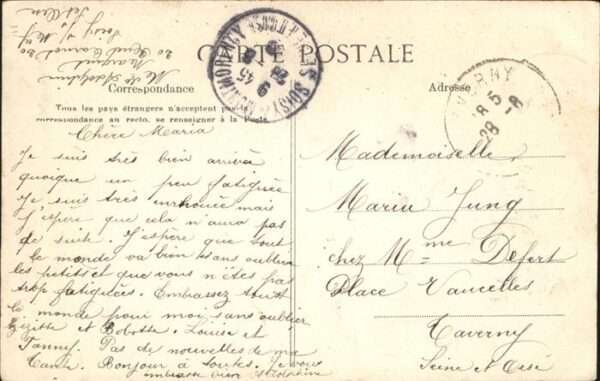 CARTE POSTALE
Correspondance
Adresse
Tous les pays étrangers n'acceptent pas la
correspondance au recto, se renseigner à la Poste
Chère Maria
Je suis très bien arrivée
quoique un peu fatiguée
Je suis très mais
j'espère que cela n'aura pas
de suite. J'espère que tout
le monde va bien sans oublier
les petits et que vous n'êtes pas
trop fatiguées. Embassez tout
le monde pour moi sans oublier
et Bobotte. Louise et
Fanny. Pas de nouvelles de ma
Tante. Bonjour à toutes. Je vous
embrasse bien
Mademoiselle
Maria Jung
chez Mme Defert
Place Vaucelles
Taverny
Seine et Oise